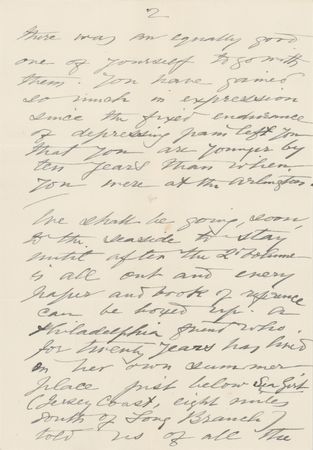 2
there was an equally good
one of yourself to go with
them. You have gained
so much in expression
since the fixed endurance
of depressing pain left you
that you are younger by
ten years than when
you were at the Arlington.
We shall be going soon,
to the seaside to stay
until after the 2d volume
is all out and every
paper and book of reference
can be boxed up. A
Philadelphia friend who
for twenty years has lived
in her own summer
place just below Sea Girt
(Jersey Coast, eight miles
South of Long Branch)
told us of all the